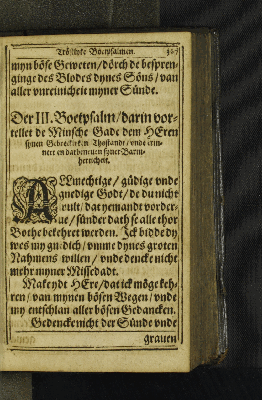 Tröstlyke Boetpsalmen.
myn böse Geweten / dörch de bespren-
ginge des Blodes dynes Söns / van
aller vnreinicheit myner Sünde.
Der III. Boetpsalm / darin vor-
tellet de Minsche Gade dem HEren
synen Gebreckliken Thostandt / vnde erin-
nert en dat beneuen syner Barm-
herticheit.
ALLmechtige / güdige vnde
gnedige Godt / de du nicht
wult / dat yemandt vorder-
ue / sünder dath se alle thor
Bothe bekehret werden. Ick bidde dy
wes my gnedich / vmme dynes groten
Nahmens willen / vnde dencke nicht
mehr myner Missedadt.
Make ydt HEre / dat ick möge keh-
ren / van mynen bösen Wegen / vnde
my entschlan aller bösen Gedancken.
Gedencke nicht der Sünde vnde
grauen